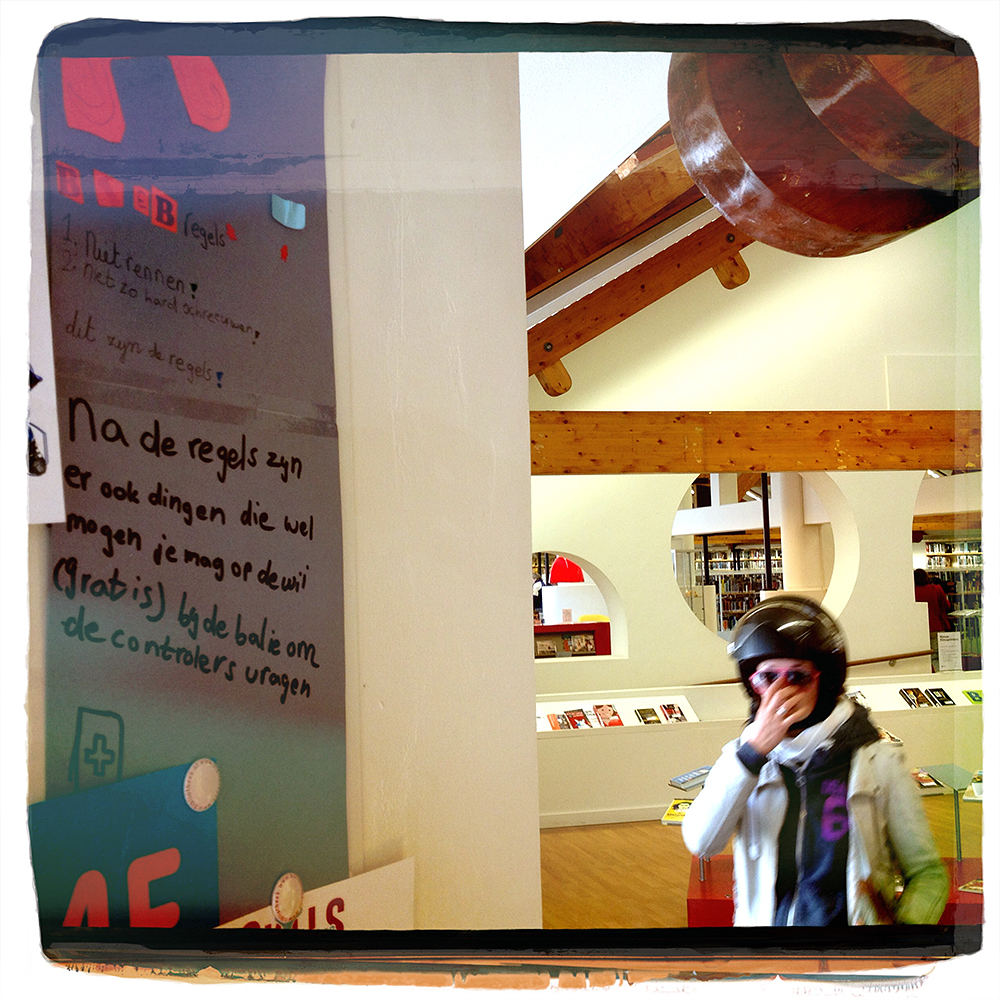 BWEB regels
1. Niet rennen!
2. Niet zo hard schreeuwen!
dit zyn de regels!
Na de regels zyn
er ook dingen die wel
mogen je mag op de wii
(gratis) by de balie om
de controlers vragen